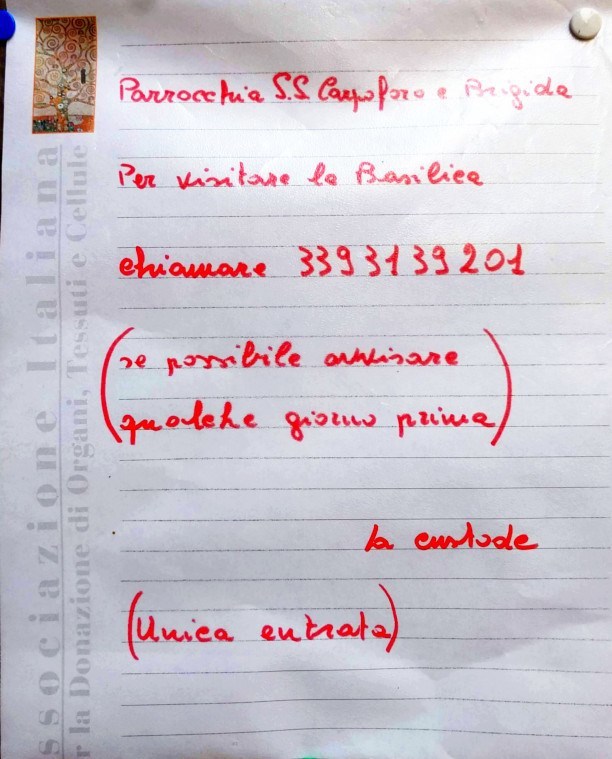 Parrocchia S.S. Carpoforo e Brigida
Per visitare la Basilica
chiamare 3393139201
(se possibile avvisare
qualche giorno prima)
la custode
(Unica entrata)
ssociazione Italiana
r la Donazione di Organi, Tessuti e Cellule